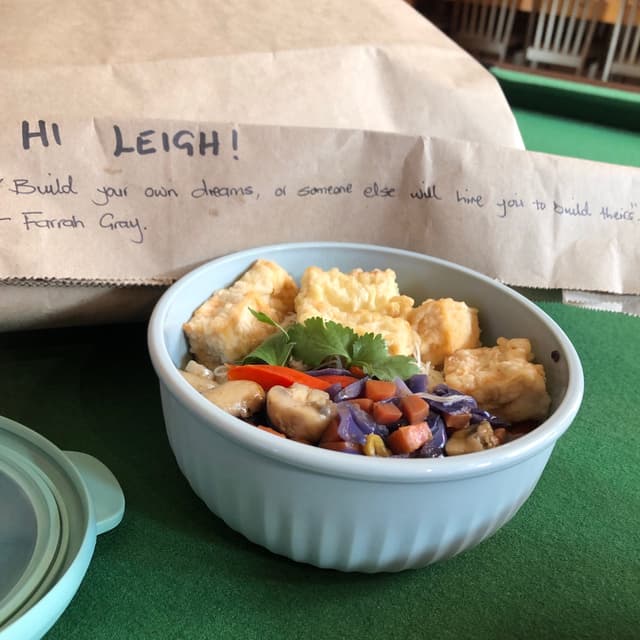 HI LEIGH!
"Build your own dreams, or someone else will hire you to build theirs".
- Farrah Gray.